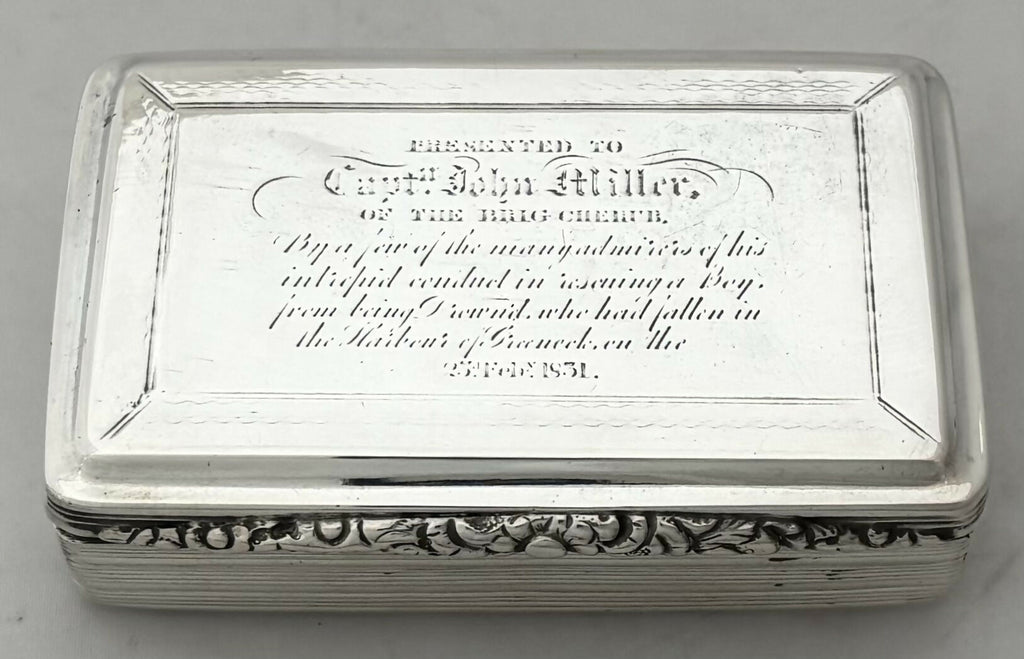 PRESENTED TO
Captn. John Miller,
OF THE BRIG CHERUB.
By a few of the many admirers of his
intrepid conduct in rescuing a Boy,
from being Drown'd, who had fallen in
the Harbour of Greenock, on the
Feby. 1831.